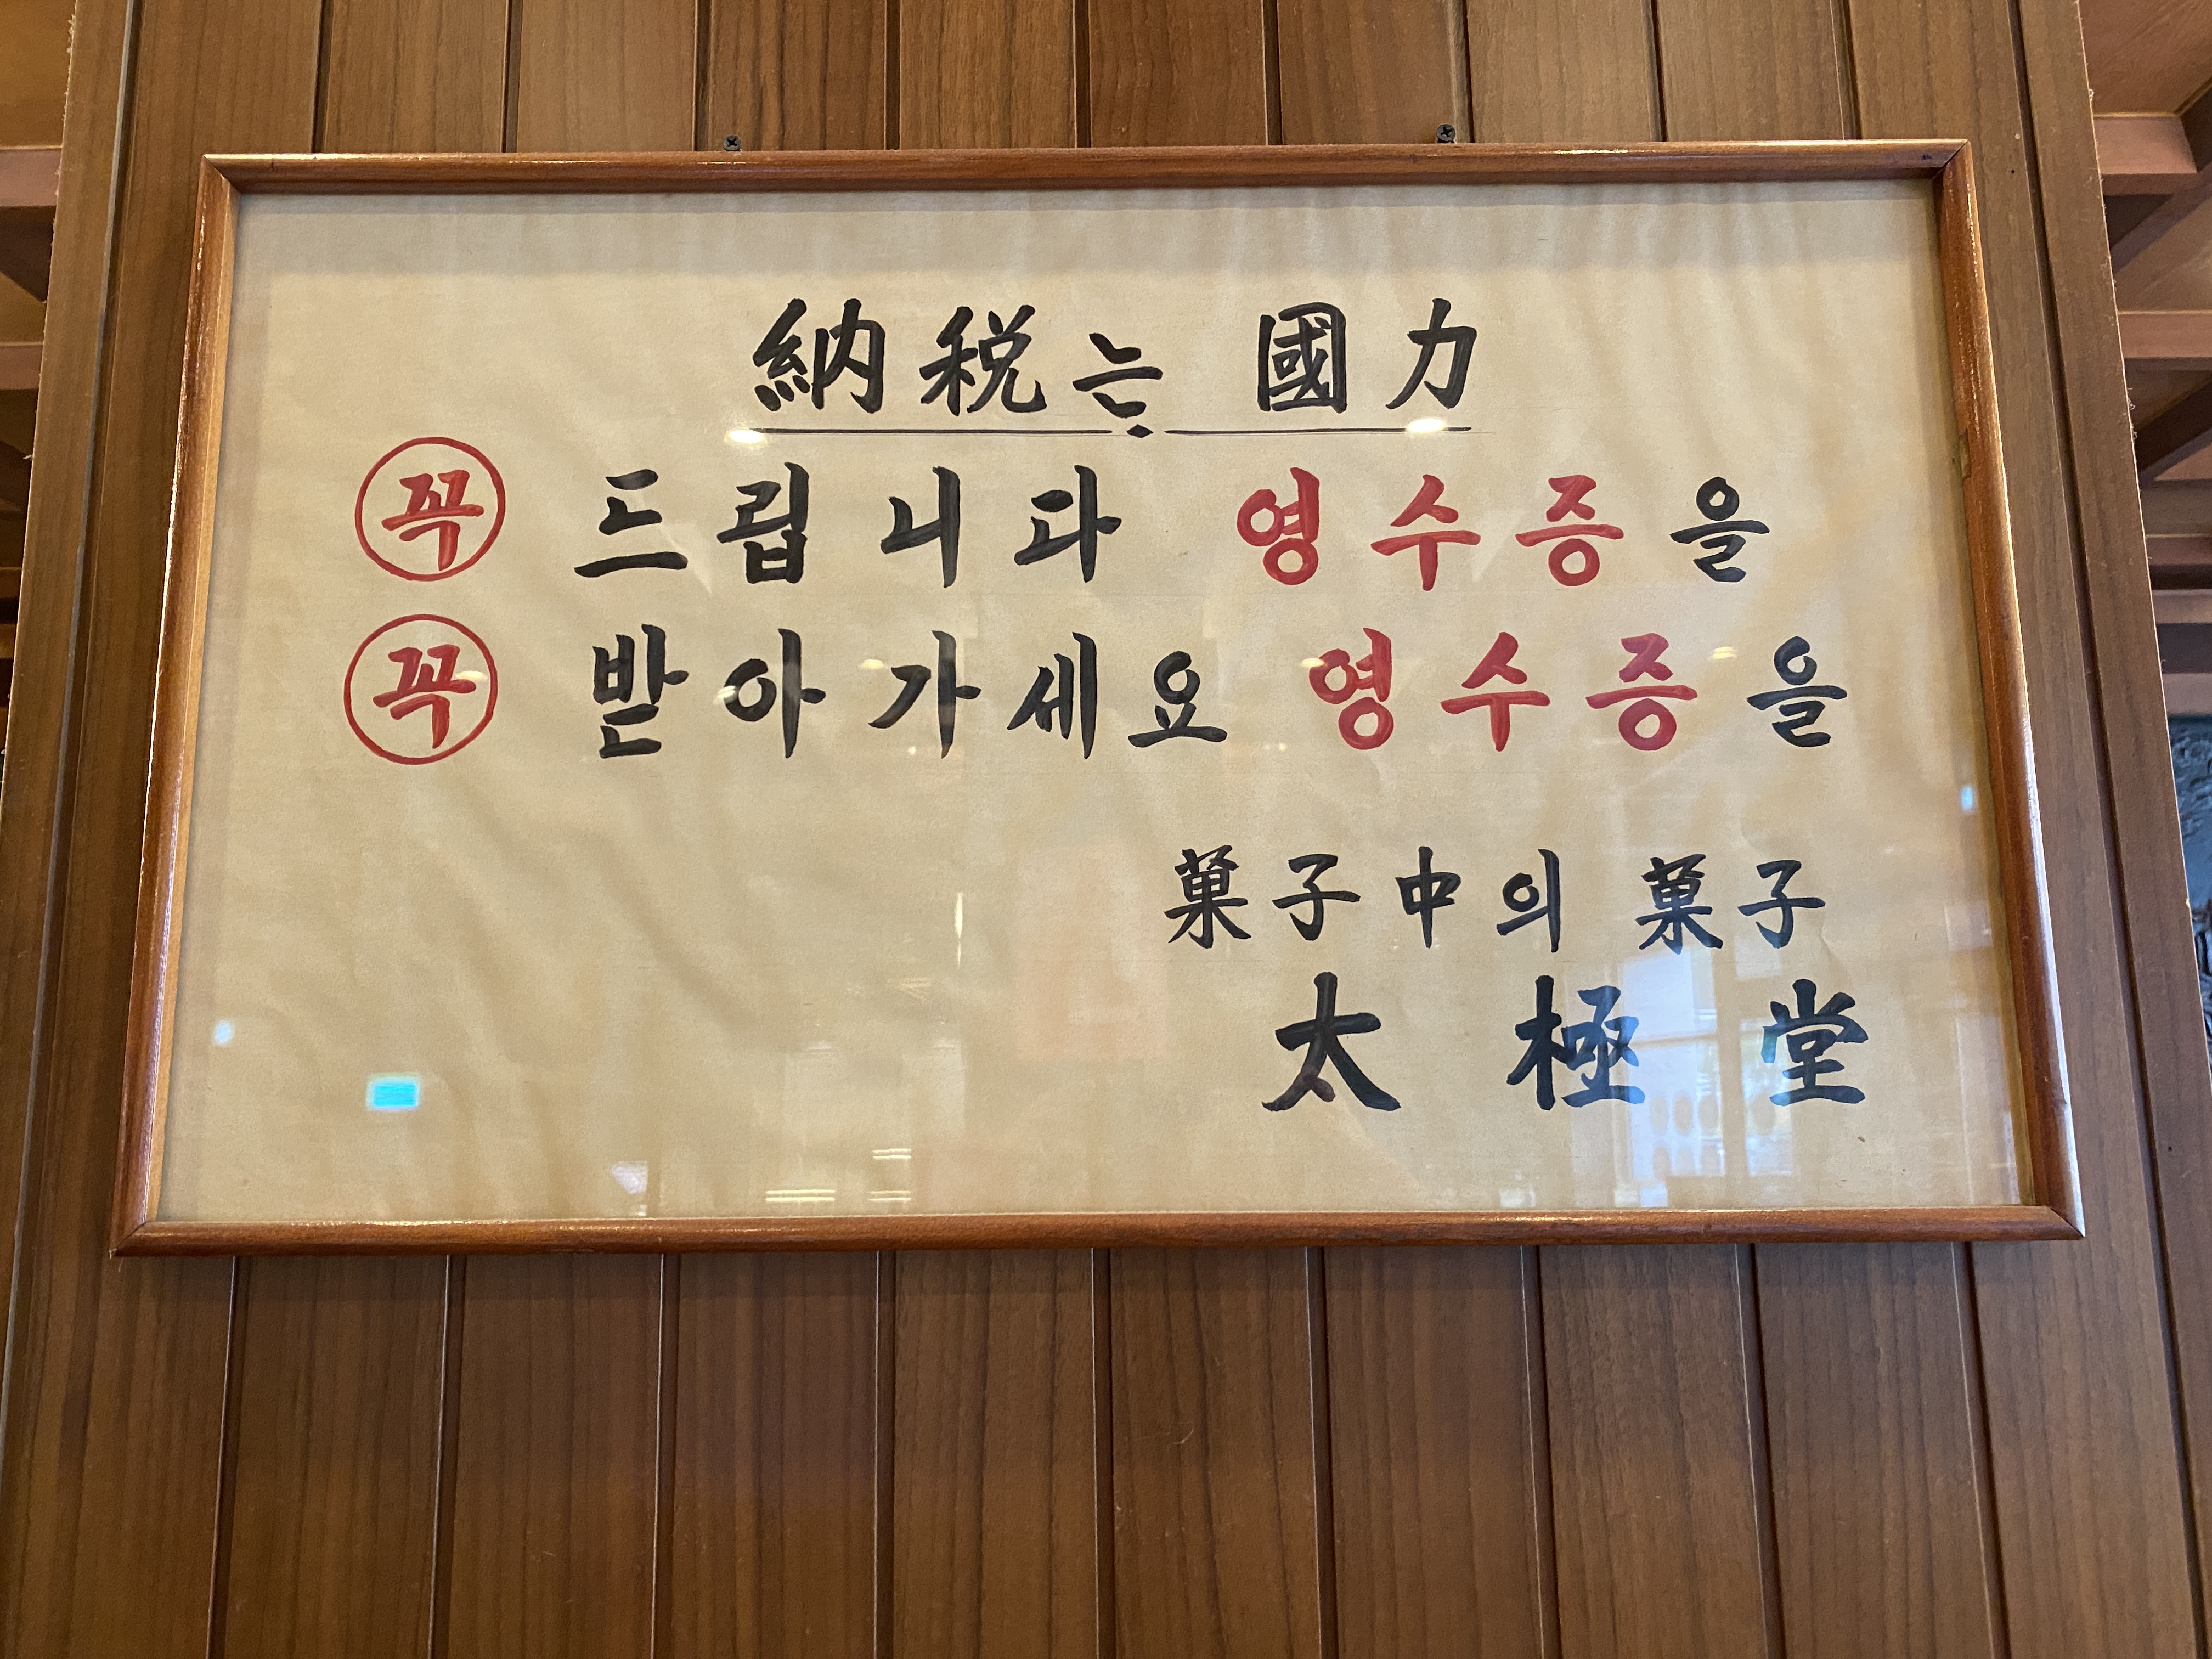 納税는 國力
꼭 드립니다 영수증을
꼭 받아가세요 영수증을
菓子中의 菓子
太極堂